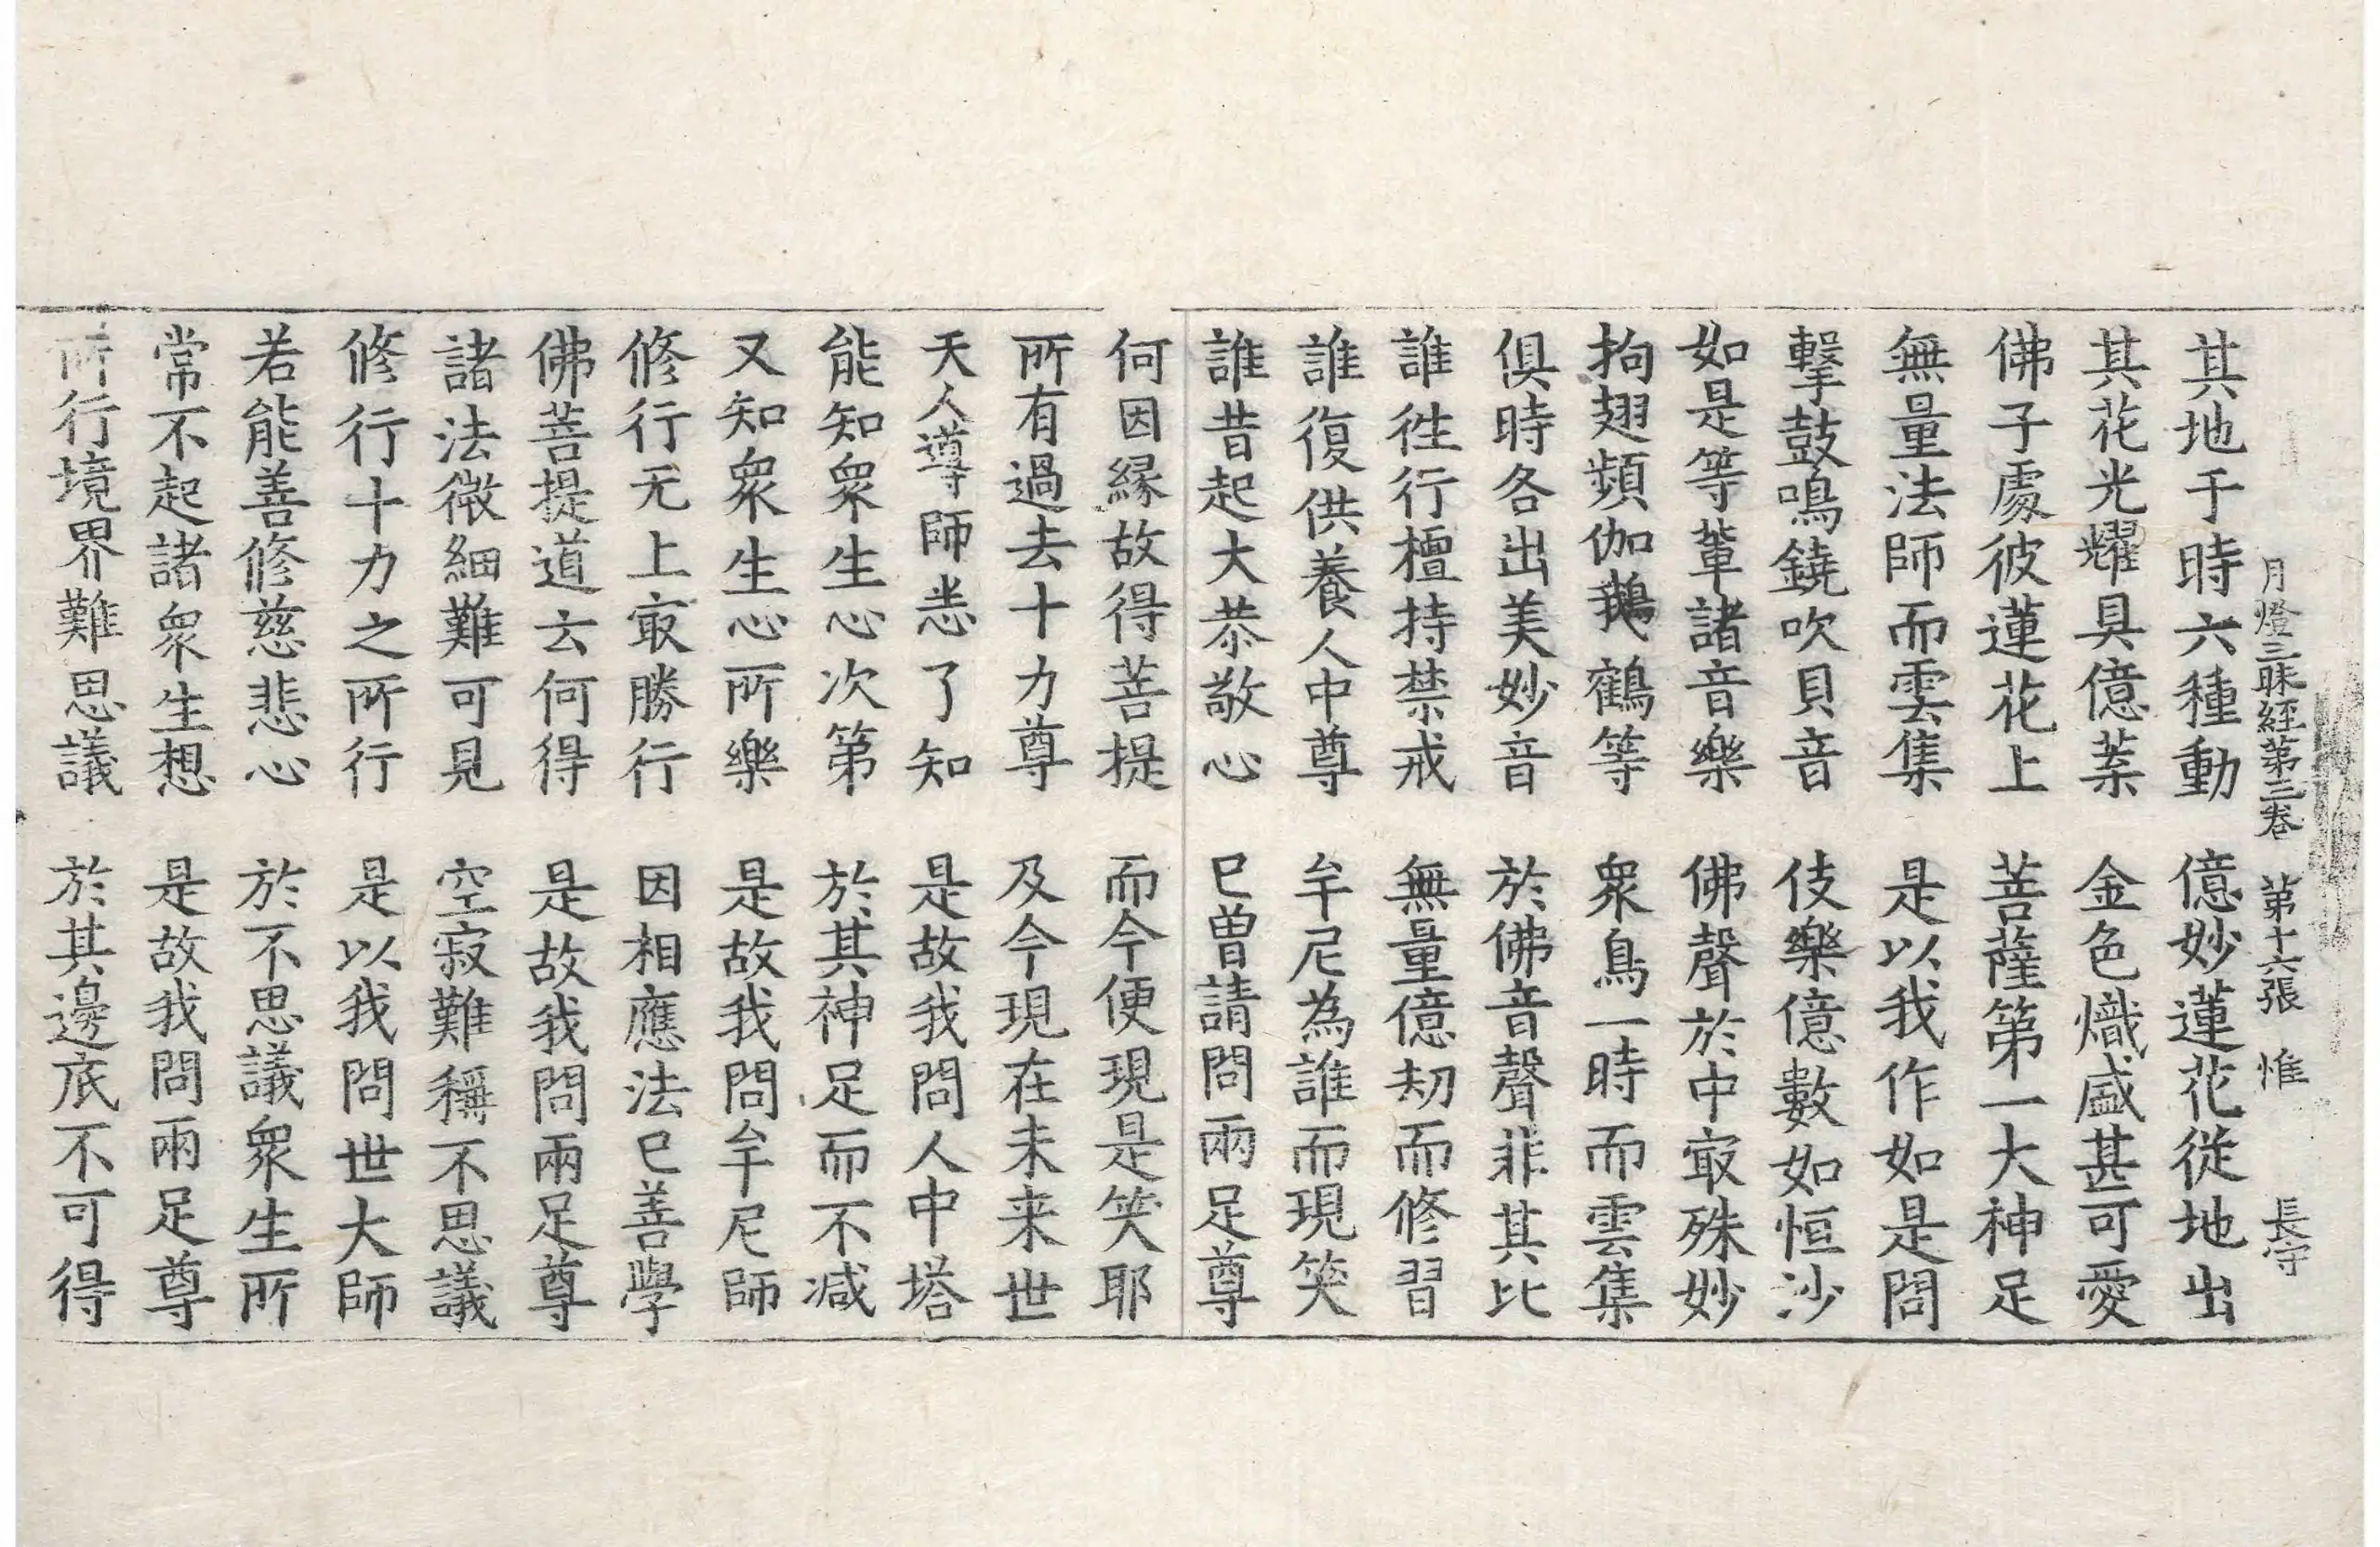 月燈三昧経第三卷 第十六張 惟 長守
其地于時六種動 億妙蓮花從地出
其花光耀具億葉 金色熾盛甚可愛
佛子處彼蓮花上 菩薩第一大神足
無量法師而雲集 是以我作如是問
擊鼓鳴鐃吹貝音 伎樂億數如恒沙
如是等軰諸音樂 佛聲於中㝡殊妙
拘翅頻伽鵝鶴等 衆鳥一時而雲集
俱時各出美妙音 於佛音聲非其比
誰徃行檀持禁戒 無量億劫而修習
誰復供養人中尊 牟尼為誰而現笑
誰昔起大恭敬心 已曾請問兩足尊
何因縁故得菩提 而今便現是笑耶
所有過去十力尊 及今現在未来世
天人導師悉了知 是故我問人中塔
能知衆生心次第 於其神足而不減
又知衆生心所樂 是故我問牟尼師
修行无上㝡勝行 因相應法已善學
佛菩提道云何得 是故我問兩足尊
諸法微細難可見 空寂難稱不思議
修行十力之所行 是以我問世大師
若能善修慈悲心 於不思議衆生所
常不起諸衆生想 是故我問兩足尊
所行境界難思議 於其邊底不可得